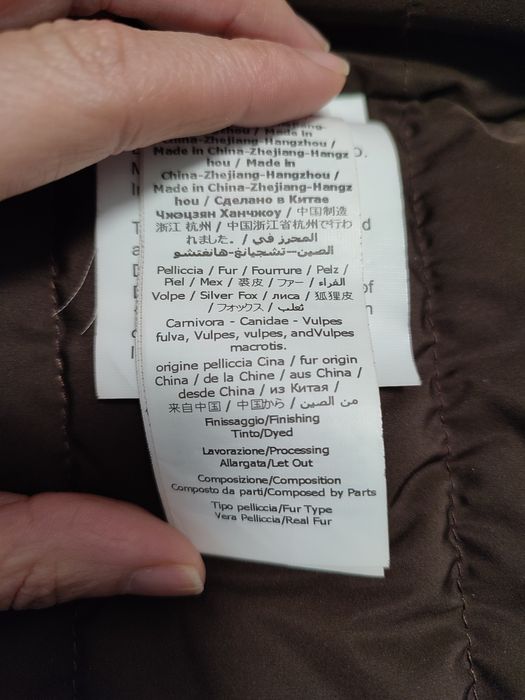 China-Zhejiang-Hangzhou /
Made in China-Zhejiang-Hangz
hou / Made in
China-Zhejiang-Hangzhou /
Made in China-Zhejiang-Hangz
hou / Сделано в Китае
Чжэцзян Ханчжоу / 中国制造
浙江 杭州 / 中国浙江省杭州で行わ
れました。 / المحرز في
الصين-تشجيانغ-هانغتشو
Pelliccia / Fur / Fourrure / Pelz /
Piel / Мех / 裘皮 / ファー / الفراء
Volpe / Silver Fox / лиса / 狐狸皮
/ フォックス / ثعلب
Carnivora - Canidae - Vulpes
fulva, Vulpes, vulpes, andVulpes
macrotis.
origine pelliccia Cina / fur origin
China / de la Chine / aus China /
desde China / из Китая /
来自中国 / 中国から / من الصين
Finissaggio/Finishing
Tinto/Dyed
Lavorazione/Processing
Allargata/Let Out
Composizione/Composition
Composto da parti/Composed by Parts
Tipo pelliccia/Fur Type
Vera Pelliccia/Real Fur